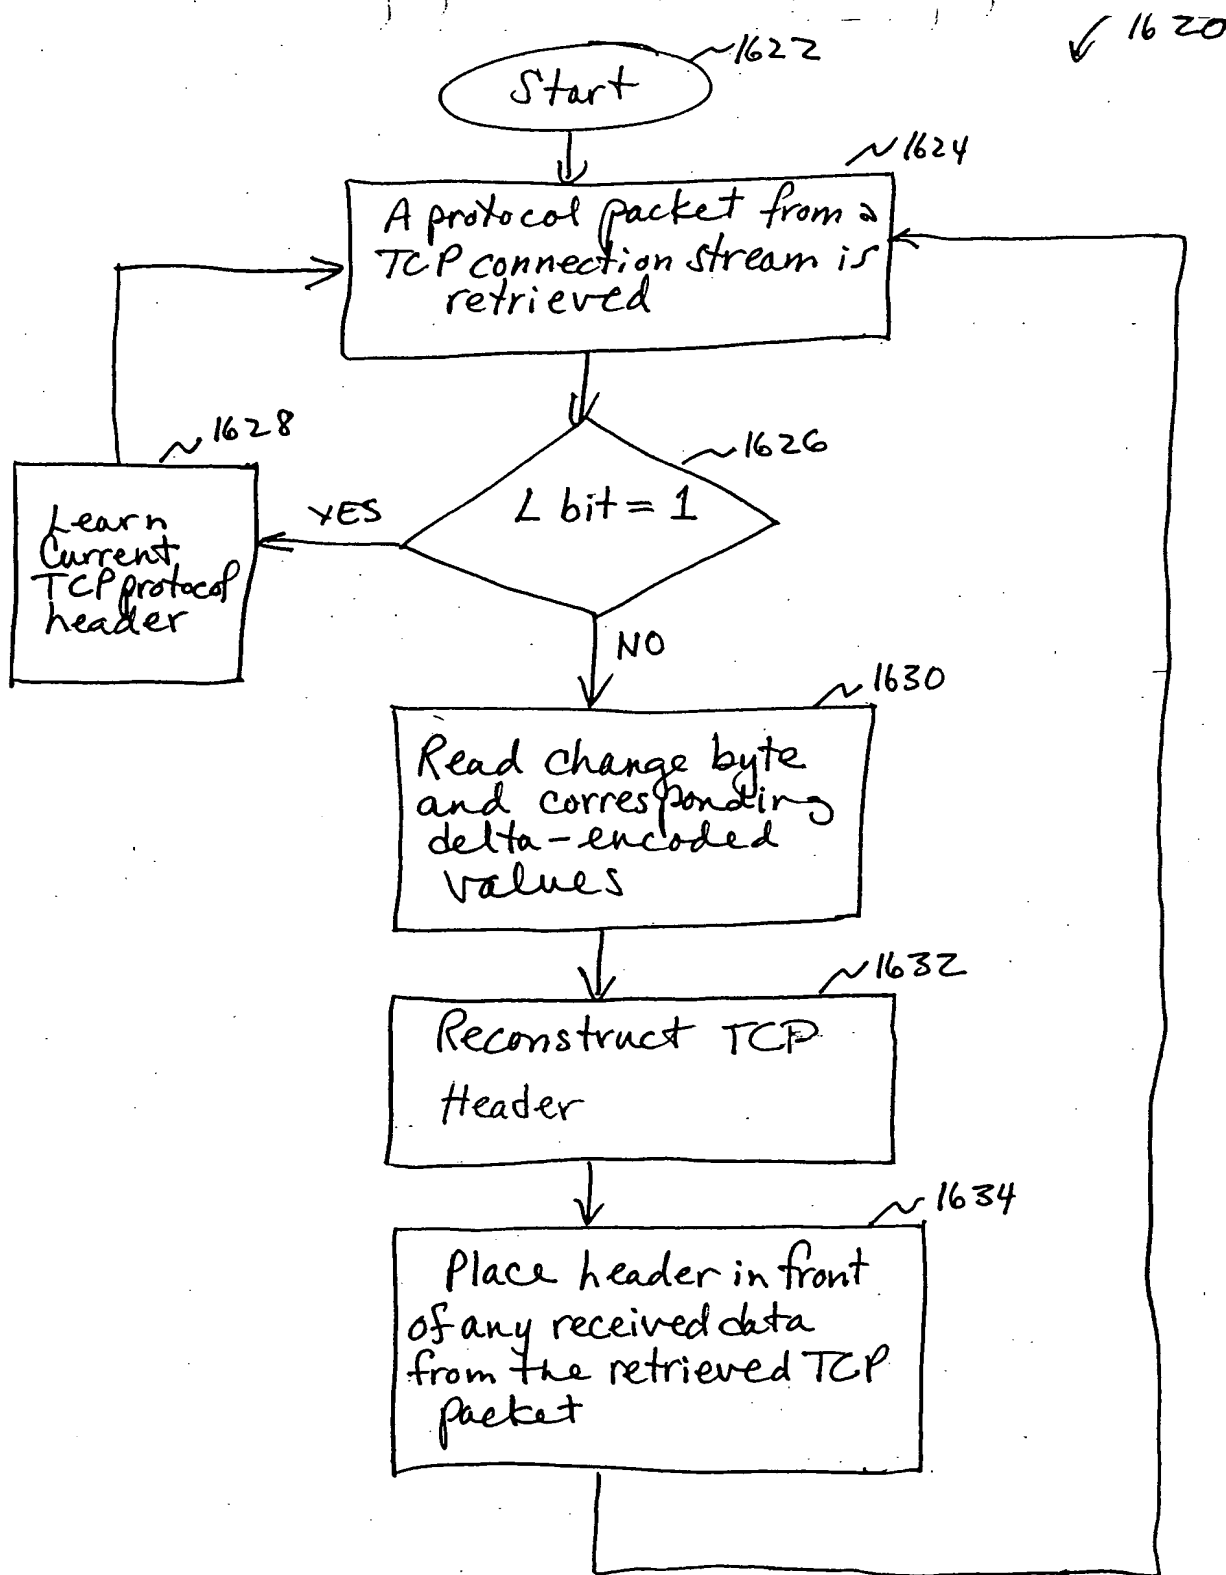 1620
1622
Start
1624
A protocol packet from a
TCP connection stream is
retrieved
1628
1626
L bit = 1
YES
Learn
Current
TCP protocol
header
NO
1630
Read change byte
and corresponding
delta-encoded
values
1632
Reconstruct TCP
Header
1634
Place header in front
of any received data
from the retrieved TCP
packet